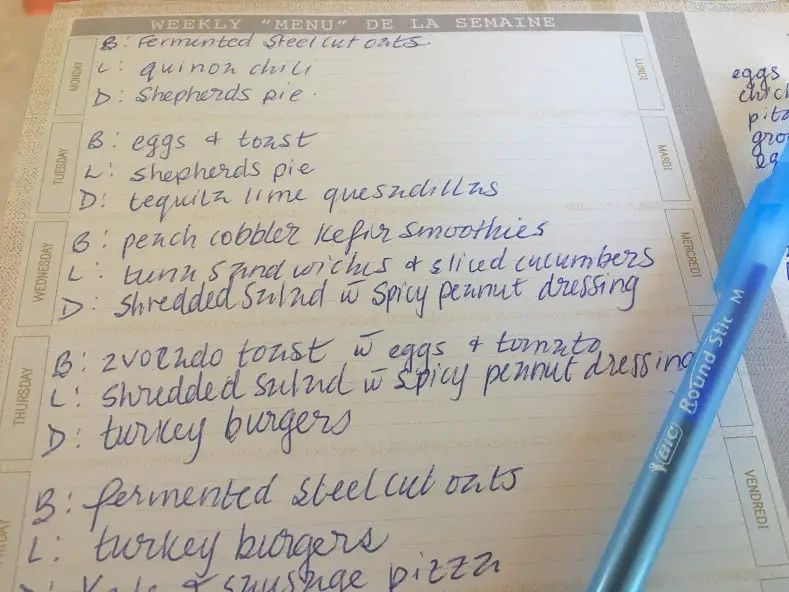 WEEKLY "MENU" DE LA SEMAINE
MONDAY
B: Fermented Steelcut oats
L: quinoa chili
D: Shepherds pie.
LUNDI
TUESDAY
B: eggs & toast
L: shepherds pie
D: tequila lime quesadillas
MARDI
WEDNESDAY
B: peach cobbler kefir smoothies
L: tuna sandwiches & sliced cucumbers
D: Shredded Salad w̄ Spicy peanut dressing
MERCREDI
THURSDAY
B: avocado toast w̄ eggs & tomato
L: Shredded Salad w̄ Spicy peanut dressing
D: turkey burgers
B: fermented steelcut oats
L: turkey burgers
Kale & sausage pizza
VENDREDI
eggs
BIC Round Stic M